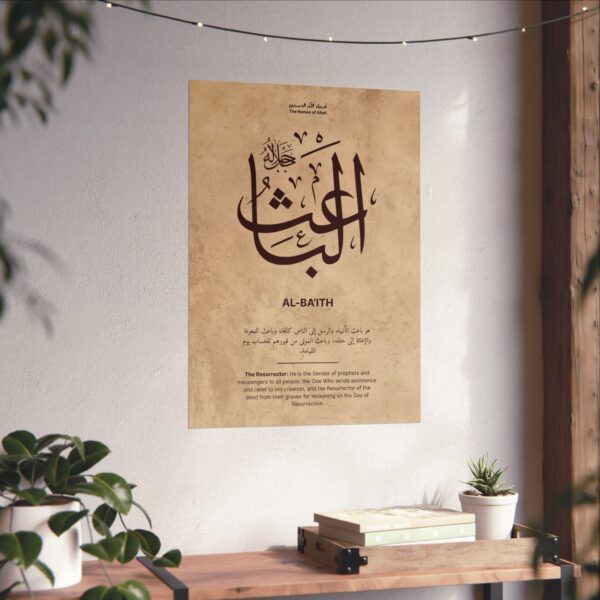 أسماء الله الحسنى
The Names of Allah
جل جلاله
الباعث
AL-BA'ITH
هو باعث الأنبياء والرسل إلى الناس كافة، وباعث المعونة
والإغاثة إلى خلقه، وباعث الموتى من قبورهم للحساب يوم
القيامة.
The Resurrector: He is the Sender of prophets and
messengers to all people, the One Who sends assistance
and relief to His creation, and the Resurrector of the
dead from their graves for reckoning on the Day of
Resurrection.
HOME